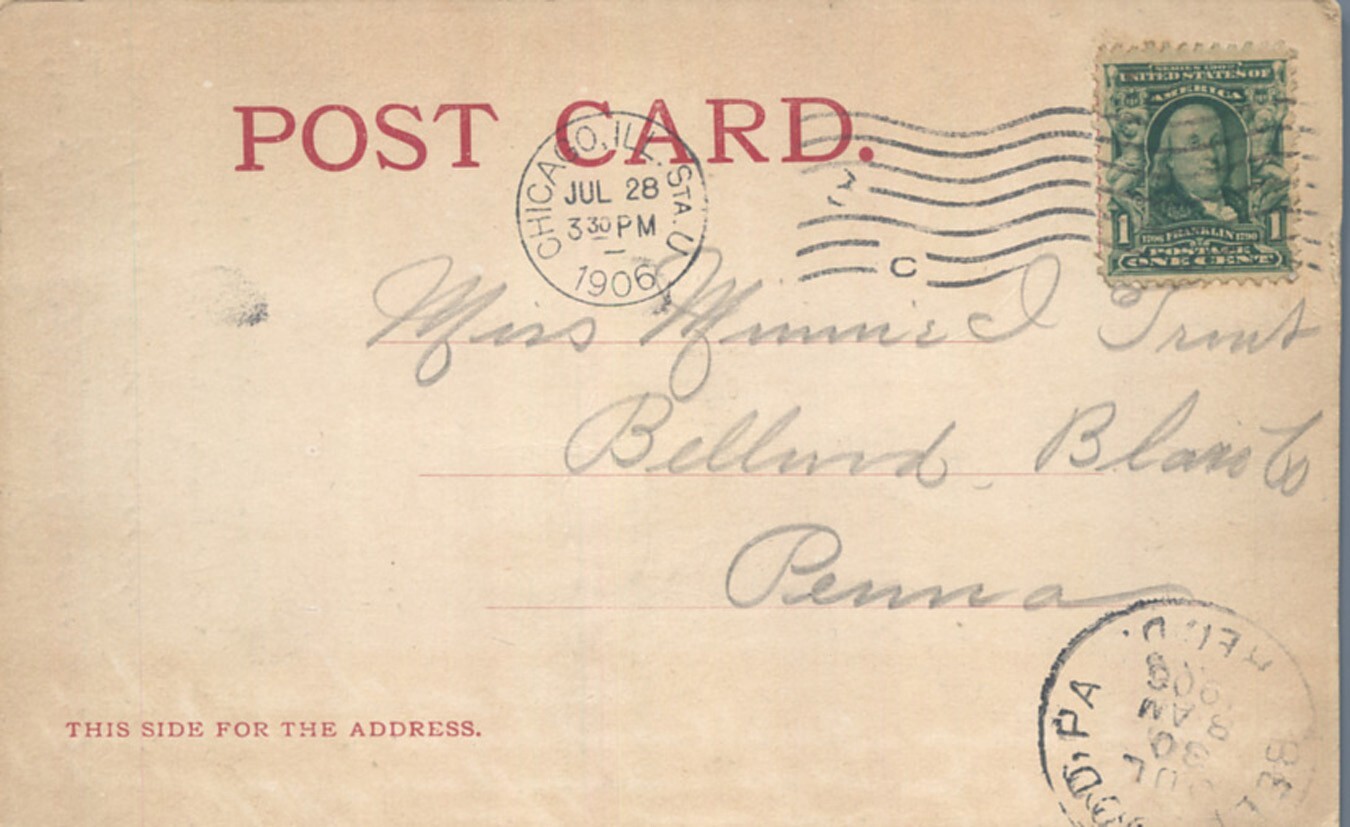 POST CARD.
CHICAGO, ILL. STA. U
JUL 28
3 30 PM
1906
C
SERIES 1902
UNITED STATES OF
AMERICA
1 1706 FRANKLIN 1790 1
POSTAGE
ONE CENT
Miss Minnie I Trout
Bellwood, Blair Co
Penna
THIS SIDE FOR THE ADDRESS.
PA
REC'D.
JUL
30
AM